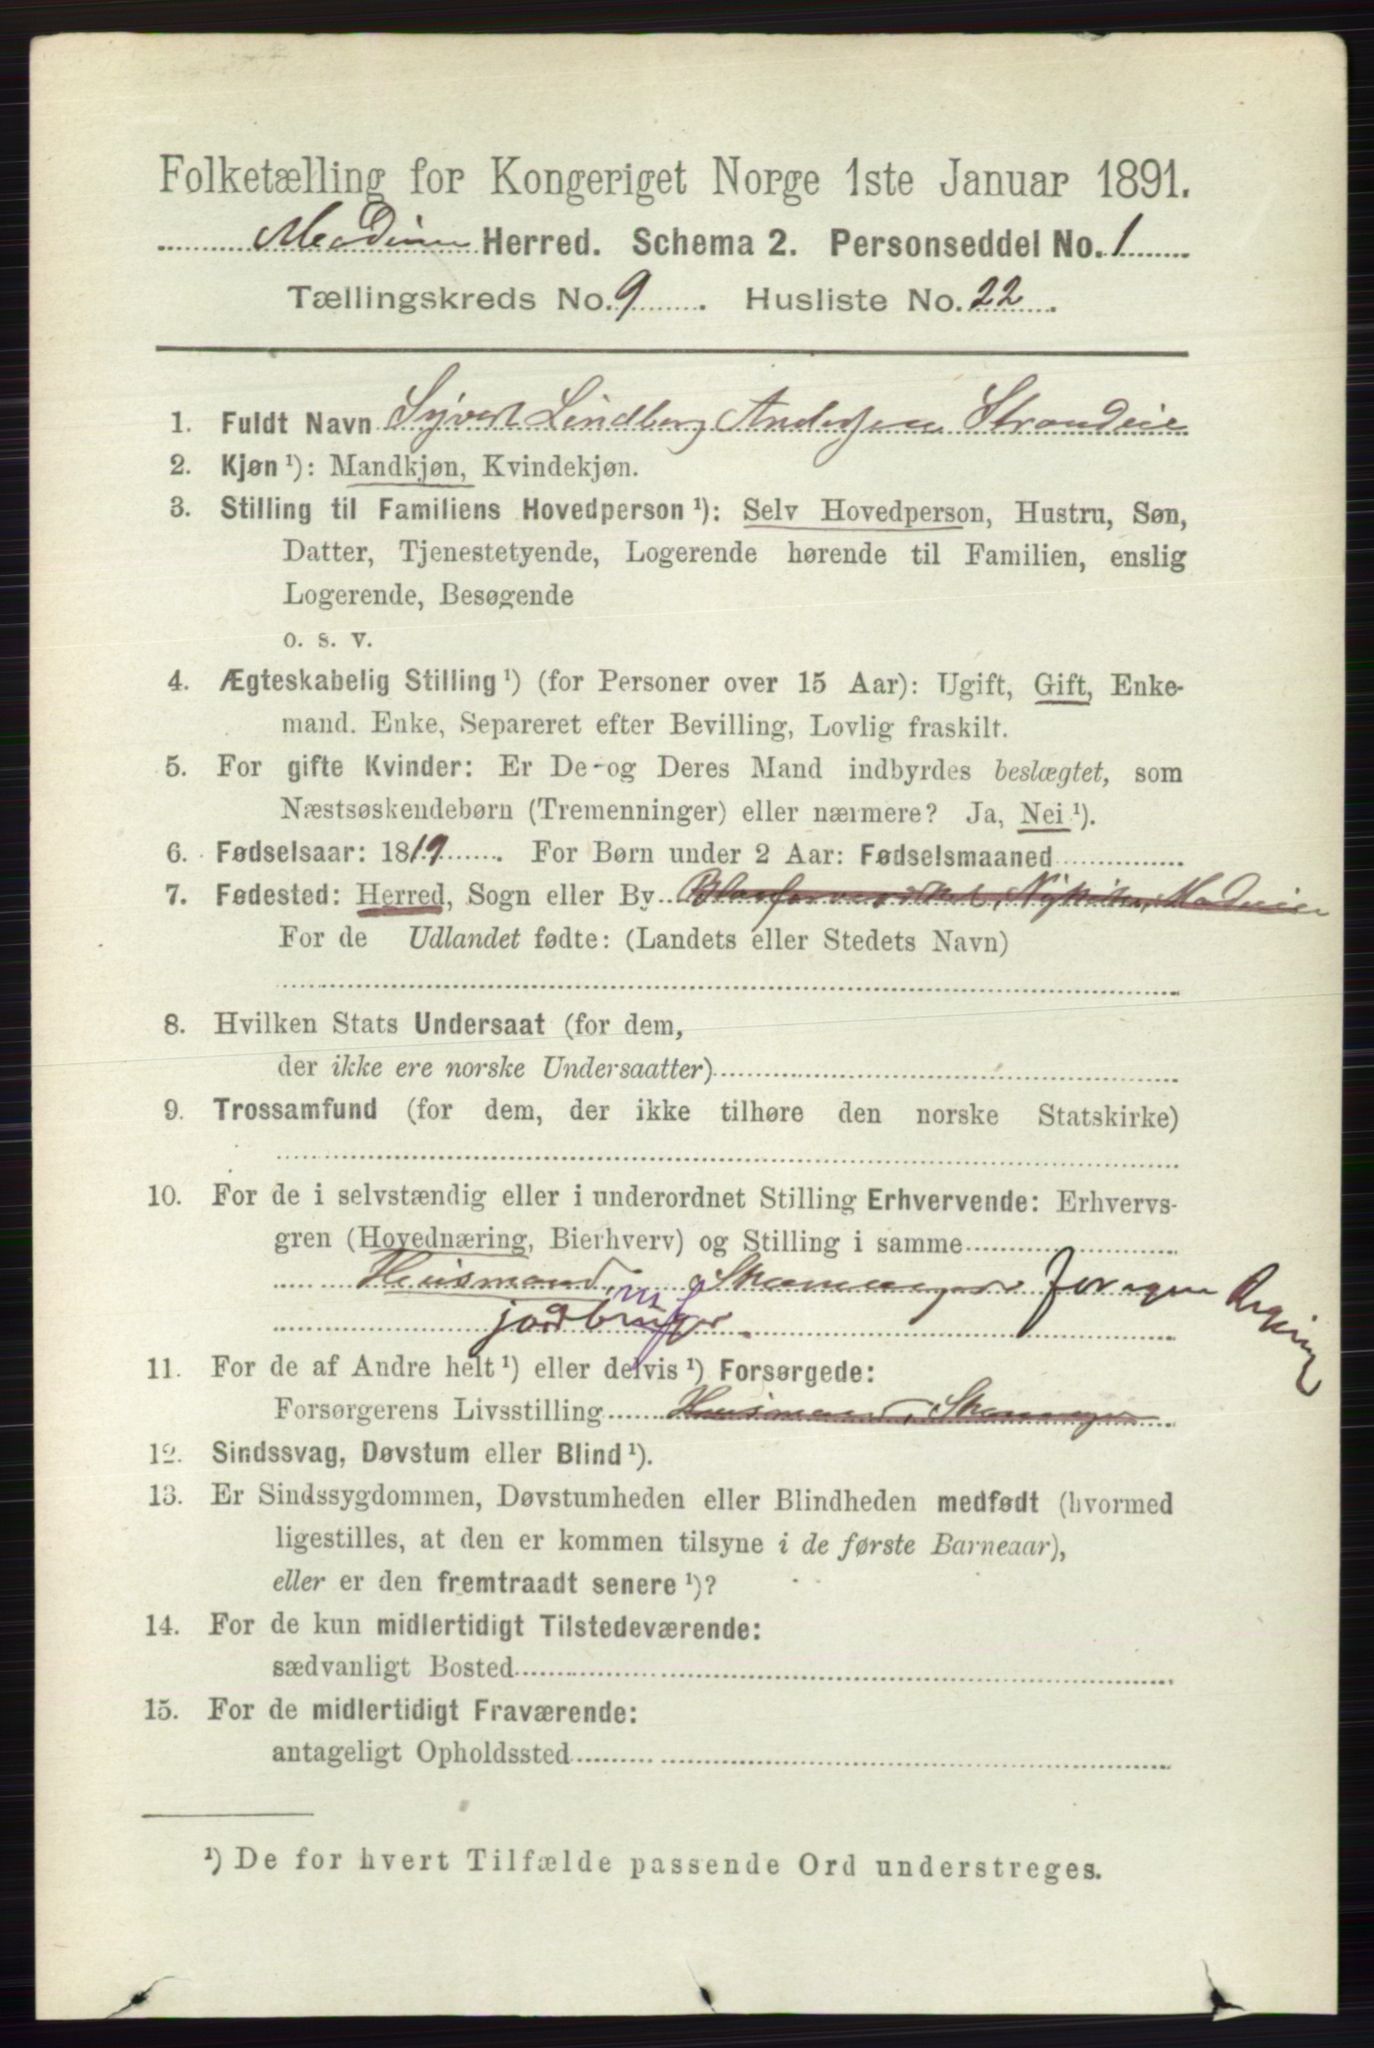 Folketælling for Kongeriget Norge 1ste Januar 1891.
Modum Herred. Schema 2. Personseddel No. 1
Tællingskreds No. 9. Husliste No. 22.
1. Fuldt Navn Syvert Lindberg Andersen Strandeie
2. Kjøn ¹): Mandkjøn, Kvindekjøn.
3. Stilling til Familiens Hovedperson ¹): Selv Hovedperson, Hustru, Søn,
Datter, Tjenestetyende, Logerende hørende til Familien, enslig
Logerende, Besøgende
o. s. v.
4. Ægteskabelig Stilling ¹) (for Personer over 15 Aar): Ugift, Gift, Enke-
mand. Enke, Separeret efter Bevilling, Lovlig fraskilt.
5. For gifte Kvinder: Er De og Deres Mand indbyrdes beslægtet, som
Næstsøskendebørn (Tremenninger) eller nærmere? Ja, Nei ¹).
6. Fødselsaar: 1819. For Børn under 2 Aar: Fødselsmaaned
7. Fødested: Herred, Sogn eller By Blaafarveværket, Nykirke, Modum
For de Udlandet fødte: (Landets eller Stedets Navn)
8. Hvilken Stats Undersaat (for dem,
der ikke ere norske Undersaatter)
9. Trossamfund (for dem, der ikke tilhøre den norske Statskirke)
10. For de i selvstændig eller i underordnet Stilling Erhvervende: Erhvervs-
gren (Hovednæring, Bierhverv) og Stilling i samme
Husmand, Skomager for egen Regning
m f
jordbruger
11. For de af Andre helt ¹) eller delvis ¹) Forsørgede:
Forsørgerens Livsstilling Husmand, Skomager
12. Sindssvag, Døvstum eller Blind ¹).
13. Er Sindssygdommen, Døvstumheden eller Blindheden medfødt (hvormed
ligestilles, at den er kommen tilsyne i de første Barneaar),
eller er den fremtraadt senere ¹)?
14. For de kun midlertidigt Tilstedeværende:
sædvanligt Bosted
15. For de midlertidigt Fraværende:
antageligt Opholdssted
¹) De for hvert Tilfælde passende Ord understreges.